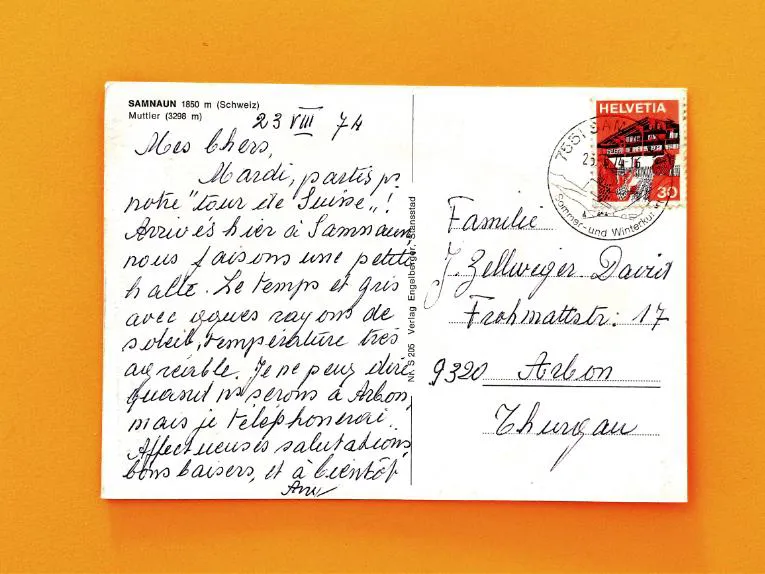 SAMNAUN 1850 m (Schweiz)
Muttler (3298 m)
23 VIII 74
Mes Chers,
Mardi, partis pr
notre "tour de Suisse„!
Arrivés hier à Samnaun
nous faisons une petite
halte. Le temps et gris
avec qques rayons de
soleil, température très
agréable. Je ne peux dire
quand ns serons à Arbon,
mais je téléphonerai.
Affectueuses salutations,
bons baisers, et à bientôt
Nr. S 205 Verlag Engelberger, Stansstad
HELVETIA
30
7551 SAMNAUN
Sommer- und Winterkur
Familie
J. Zellweger David
Frohmattstr: 17
9320 Arbon
Thurgau